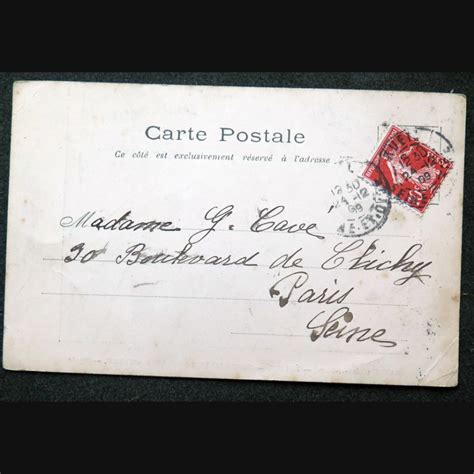 Carte Postale
Ce côté est exclusivement réservé à l'adresse
12 30
24-12
09
NE-ET-OISE
Madame G. Cave
90 Boulevard de Clichy
Paris
Seine